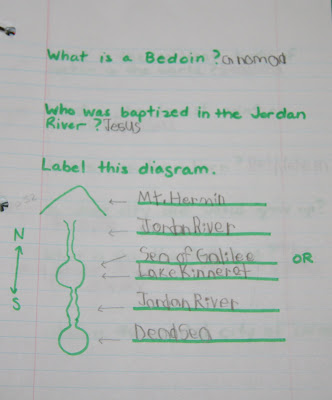 What is a Bedoin? a nomad
Who was baptized in the Jordan
River? Jesus
Label this diagram.
Mt. Hermin
N
Jordan River
Sea of Galilee OR
Lake Kinneret
S
Jordan River
Dead Sea